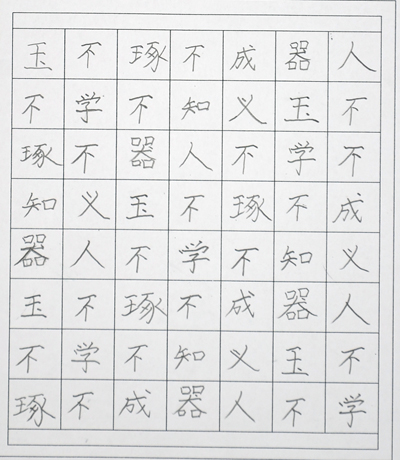 玉不琢不成器人
不学不知义玉不
琢不器人不学不
知义玉不琢不成
器人不学不知义
玉不琢不成器人
不学不知义玉不
琢不成器人不学